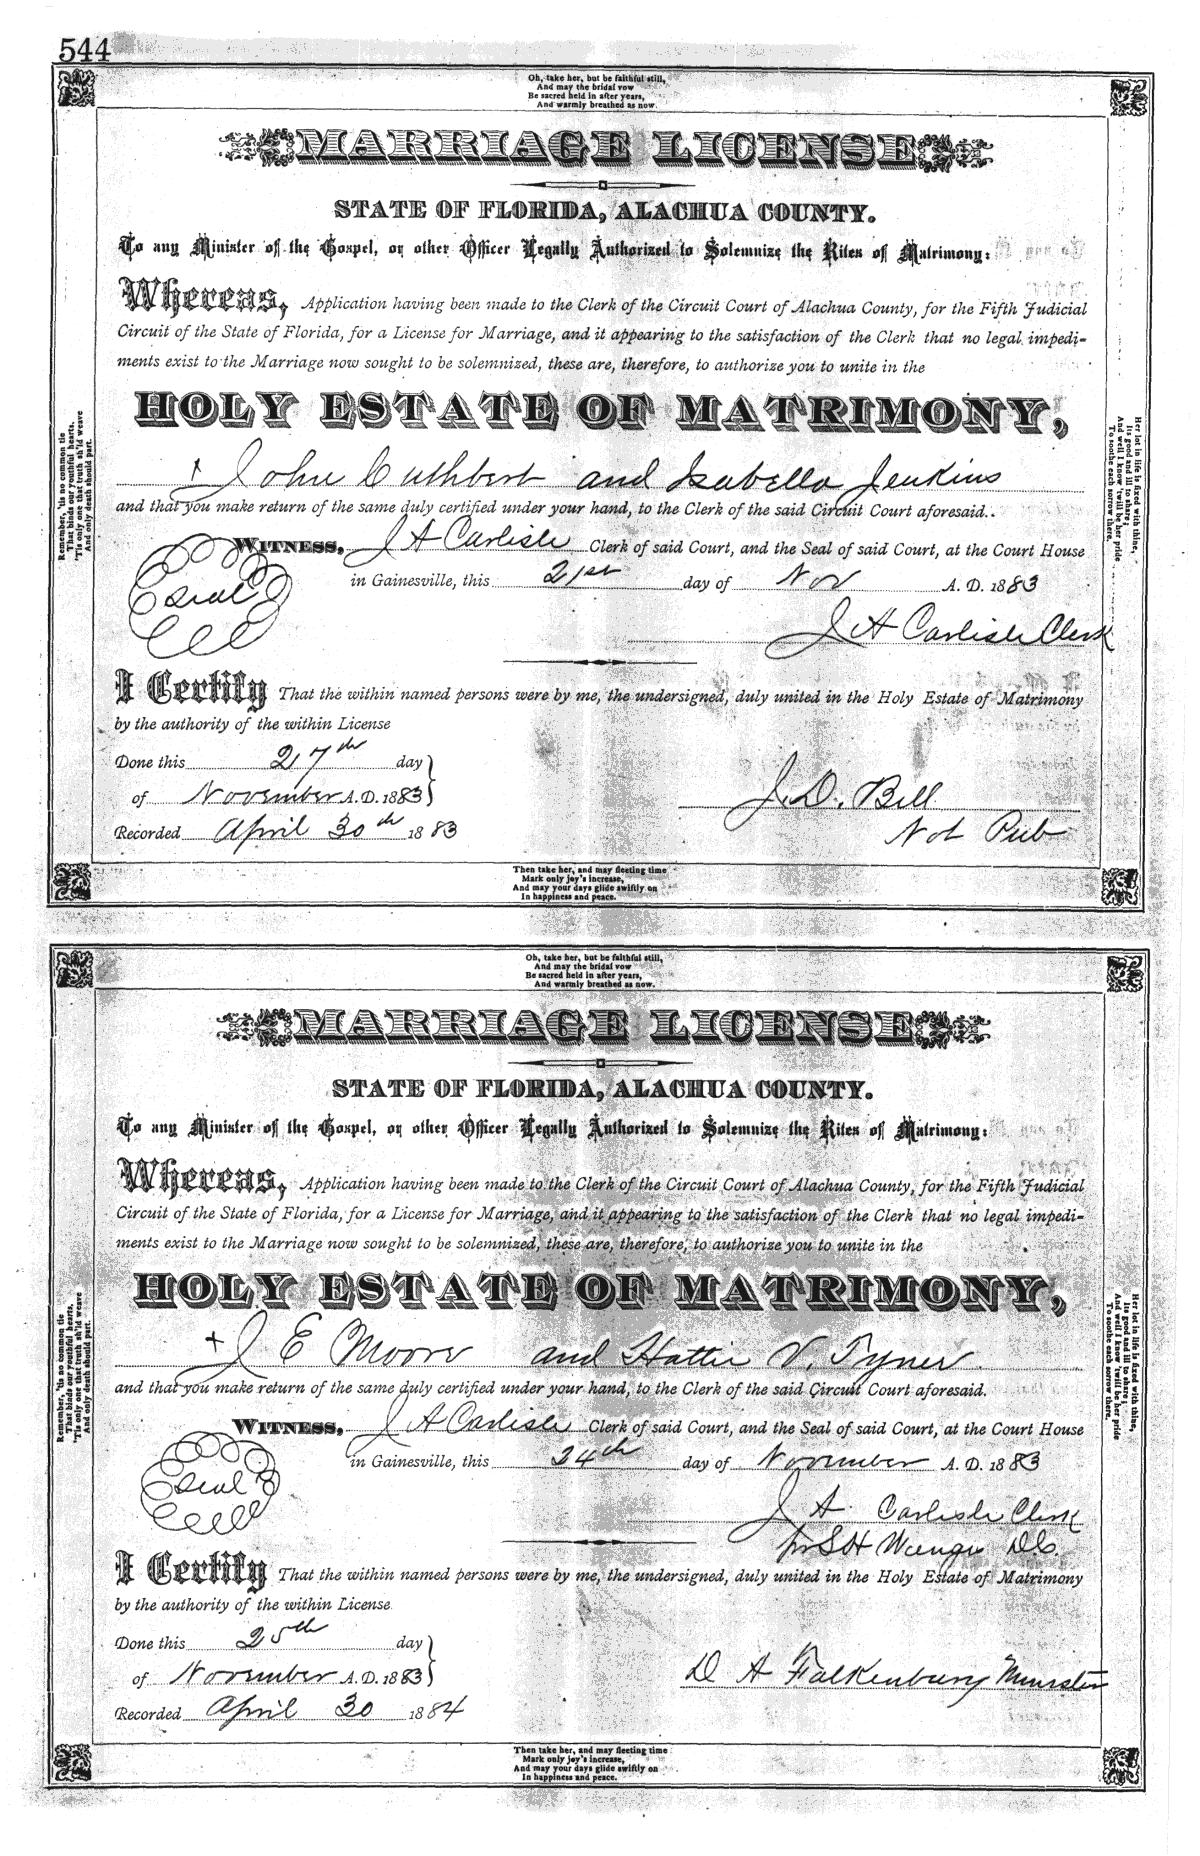 544
Oh, take her, but be faithful still,
And may the bridal vow
Be sacred held in after years,
And warmly breathed as now.
MARRIAGE LICENSE
STATE OF FLORIDA, ALACHUA COUNTY.
To any Minister of the Gospel, or other Officer Legally Authorized to Solemnize the Rites of Matrimony:
Whereas, Application having been made to the Clerk of the Circuit Court of Alachua County, for the Fifth Judicial
Circuit of the State of Florida, for a License for Marriage, and it appearing to the satisfaction of the Clerk that no legal impedi-
ments exist to the Marriage now sought to be solemnized, these are, therefore, to authorize you to unite in the
HOLY ESTATE OF MATRIMONY,
+ John Cuthbert and Isabella Jenkins
and that you make return of the same duly certified under your hand, to the Clerk of the said Circuit Court aforesaid.
WITNESS, J A Carlisle Clerk of said Court, and the Seal of said Court, at the Court House
Seal
in Gainesville, this 21st day of Nov A. D. 1883
J A Carlisle Clerk
I Certify That the within named persons were by me, the undersigned, duly united in the Holy Estate of Matrimony
by the authority of the within License
Done this 27th day
of November A. D. 1883
J. D. Bell
Recorded April 30th 1883
Not Pub
Remember, 'tis no common tie
That binds our youthful hearts,
'Tis only one that truth sh'ld weave
And only death should part.
Her lot in life is fixed with thine,
Its good and ill to share;
And well I know 'twill be her pride
To soothe each sorrow there.
Then take her, and may fleeting time
Mark only joy's increase,
And may your days glide swiftly on
In happiness and peace.
Oh, take her, but be faithful still,
And may the bridal vow
Be sacred held in after years,
And warmly breathed as now.
MARRIAGE LICENSE
STATE OF FLORIDA, ALACHUA COUNTY.
To any Minister of the Gospel, or other Officer Legally Authorized to Solemnize the Rites of Matrimony:
Whereas, Application having been made to the Clerk of the Circuit Court of Alachua County, for the Fifth Judicial
Circuit of the State of Florida, for a License for Marriage, and it appearing to the satisfaction of the Clerk that no legal impedi-
ments exist to the Marriage now sought to be solemnized, these are, therefore, to authorize you to unite in the
HOLY ESTATE OF MATRIMONY,
+ J E Moore and Hattie V. Tyner
and that you make return of the same duly certified under your hand, to the Clerk of the said Circuit Court aforesaid.
WITNESS, J A Carlisle Clerk of said Court, and the Seal of said Court, at the Court House
Seal
in Gainesville, this 24th day of November A. D. 1883
J A. Carlisle Clerk
pr S H D.C.
I Certify That the within named persons were by me, the undersigned, duly united in the Holy Estate of Matrimony
by the authority of the within License
Done this 25th day
of November A. D. 1883
D A Falkenbury Minister
Recorded April 30 1884
Remember, 'tis no common tie
That binds our youthful hearts,
'Tis only one that truth sh'ld weave
And only death should part.
Her lot in life is fixed with thine,
Its good and ill to share;
And well I know 'twill be her pride
To soothe each sorrow there.
Then take her, and may fleeting time
Mark only joy's increase,
And may your days glide swiftly on
In happiness and peace.